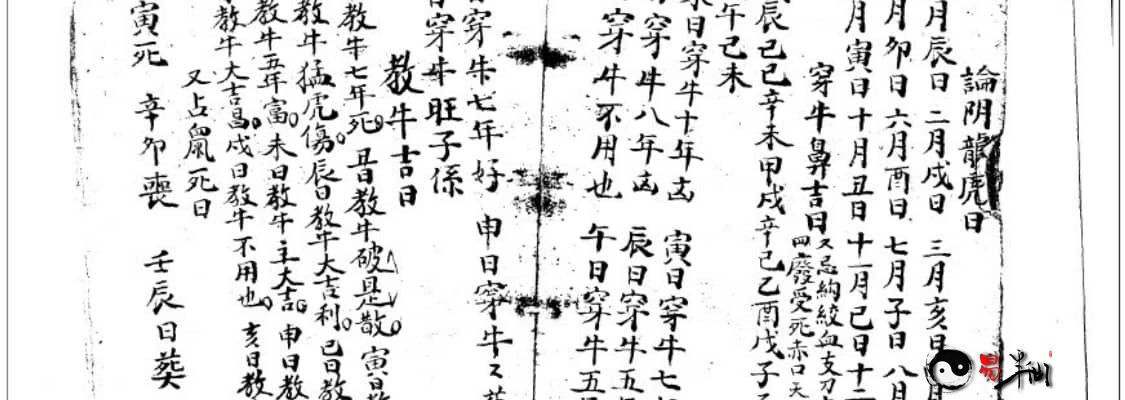 論阴龍虎日
月辰日 二月戍日 三月亥日
月卯日 六月酉日 七月子日 八月
月寅日 十月丑日 十一月巳日 十二
穿牛鼻吉日 又忌 絞血支刃
四廢受死赤口天
辰 己巳 辛未 甲戍 辛巳 乙酉 戊子
午 己未
日穿牛十年凶 寅日穿牛七
穿牛八年凶 辰日穿牛五
穿牛不用也 午日穿牛五
穿牛七年好 申日穿牛
穿牛旺子係
教牛吉日
教牛七年死 丑日教牛破是散 寅日教
教牛猛虎傷 辰日教牛大吉利 巳日教
教牛五年富 未日教牛主大吉 申日教
教牛大吉昌 戍日教牛不用也 亥日教
又占鼠死日
寅死 辛卯喪 壬辰日葬
易